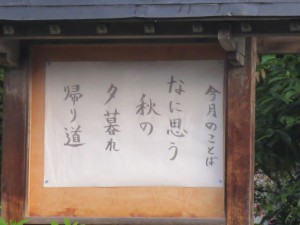 今月のことば
なに思う
秋の
夕暮れ
帰り道